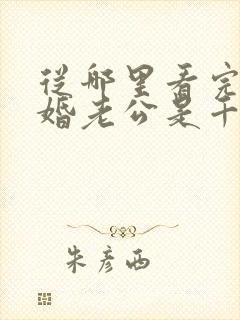 從哪里看完
婚老公是千
朱彦西